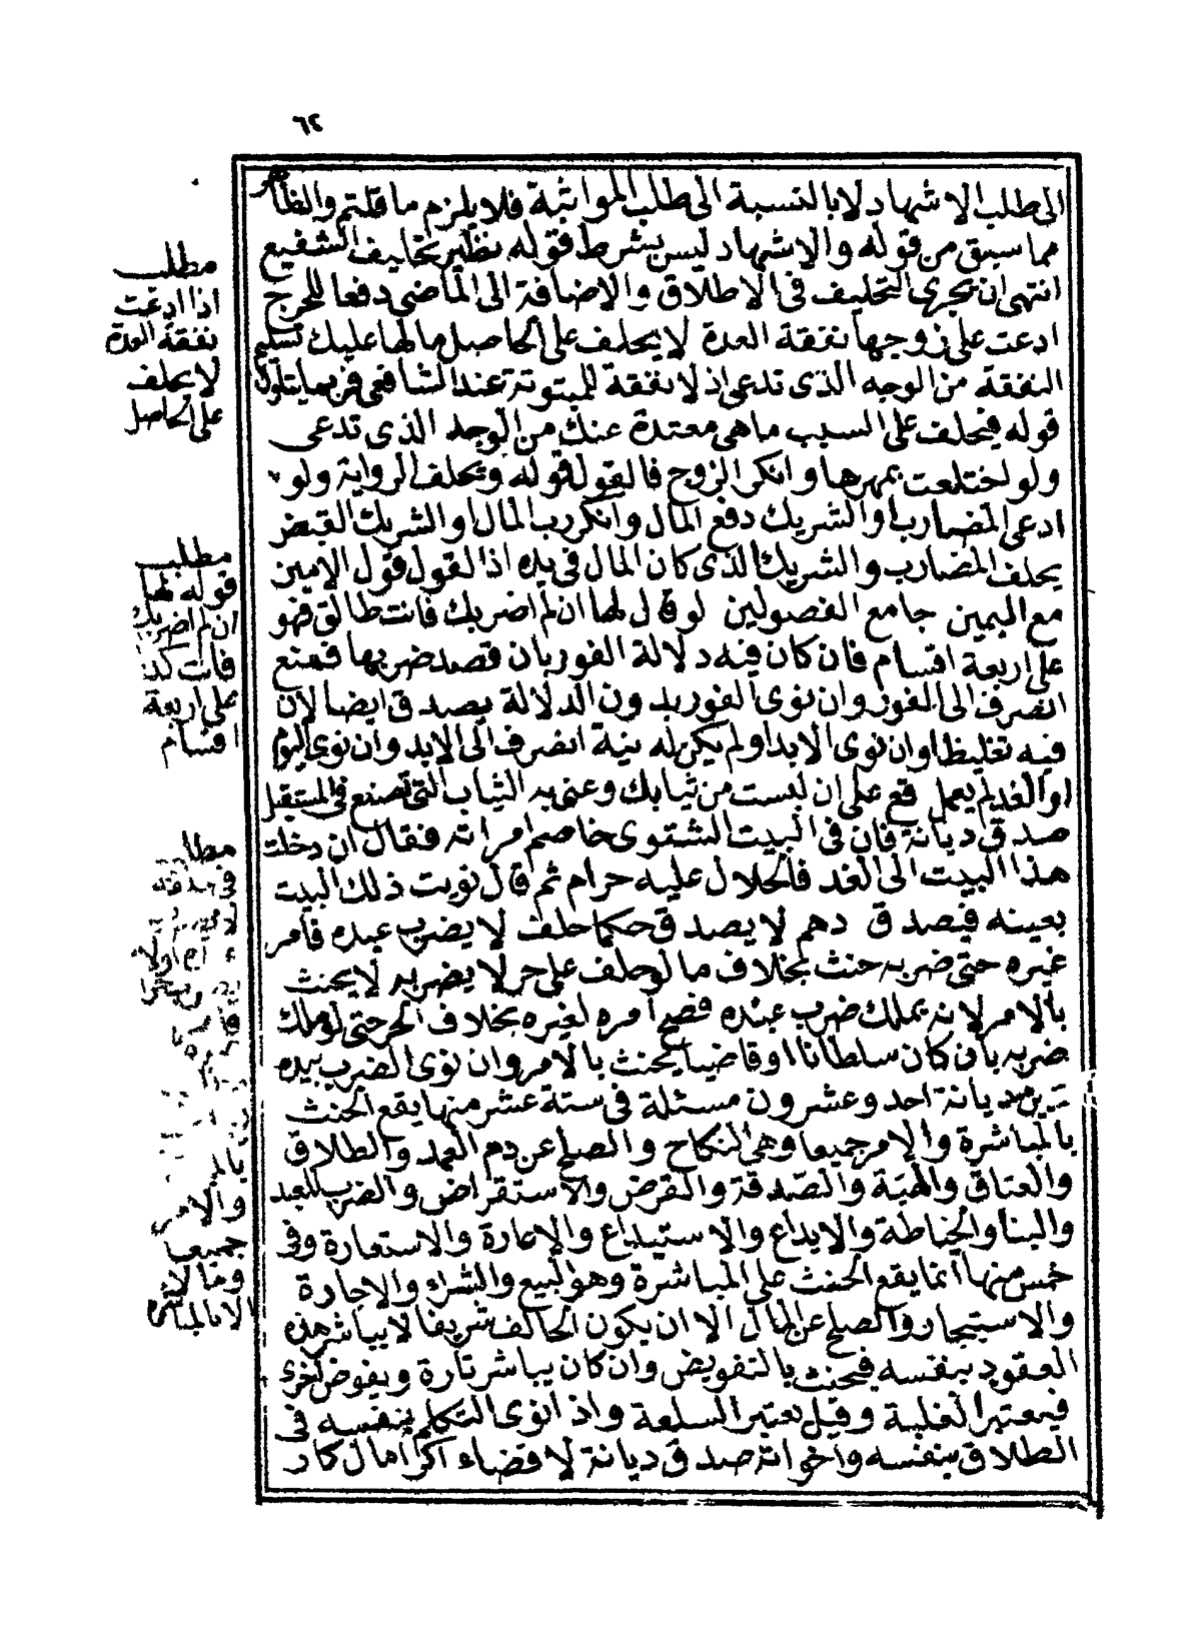 ٦٢
الى طلب الاشهاد لا بالنسبة الى طلب المواثبة فلا يلزم ما قلتم والظاهر
مما سبق من قوله والاشهاد ليس بشرط قوله نظير تحليف الشفيع
انتهى ان يجرى التحليف فى الاطلاق والاضافة الى الماضى دفعا للحرج
ادعت على زوجها نفقة العدة لا يحلف على الحاصل مالها عليك تسليم
النفقة من الوجه الذى تدعى اذ لا نفقة للمبتوتة عند الشافعى
قوله فيحلف على السبب ماهى معتدة عنك من الوجه الذى تدعى
ولو اختلعت بمهرها وانكر الزوج فالقول قوله ويحلف الرواية ولو
ادعى المضارب او الشريك دفع المال وانكر رب المال او الشريك القبض
يحلف المضارب والشريك الذى كان المال فى يده اذ القول قول الامين
مع اليمين جامع الفصولين لو قال لها ان لم اضربك فانت طالق فهو
على اربعة اقسام فان كان فيه دلالة الفور بان قصد ضربها فمنع
انصرف الى الفور وان نوى الفور بدون الدلالة يصدق ايضا لان
فيه تغليظا وان نوى الابد او لم يكن له نية انصرف الى الابد وان نوى اليوم
او الغد لم يعمل قع على ان لبست من ثيابك وعنى به الثياب التى تصنع فى المستقبل
صدق ديانة فان فى البيت الشتوى خاصم امراته فقال ان دخلت
هذا البيت الى الغد فالحلال عليه حرام ثم قال نويت ذلك البيت
بعينه فيصدق دهم لا يصدق حكما حلف لا يضرب عبده فامر
غيره حتى ضربه حنث بخلاف ما لو حلف على حر لا يضربه لا يحنث
بالامر لانه يملك ضرب عبده فصح امره لغيره بخلاف الحر حتى لو ملك
ضربه بان كان سلطانا او قاضيا يحنث بالامر وان نوى الضرب بيده
ديانة احد وعشرون مسئلة فى ستة عشر منها يقع الحنث
بالمباشرة والامر جميعا وهى النكاح والصلح عن دم العمد والطلاق
والعتاق والهبة والصدقة والقرض والاستقراض والضرب للعبد
والبنا والخياطة والايداع والاستيداع والاعارة والاستعارة وفى
خمس منها انما يقع الحنث على المباشرة وهو البيع والشراء والاجارة
والاستيجار والصلح عن المال الا ان يكون الحالف شريفا لا يباشر هذه
العقود بنفسه فيحنث بالتفويض وان كان يباشر تارة ويفوض اخرى
فيعتبر الغلبة وقيل يعتبر السلعة واذا نوى التكلم بنفسه فى
الطلاق بنفسه واخواته صدق ديانة لا قضاء اكرا مال كار
مطلب
اذا ادعت
نفقة العدة
لا يحلف
على الحاصل
مطلب
قوله لها
ان لم اضربك
فانت كذا
على اربعة
اقسام
بالمبا
والامر
جميعا
ومالا
الا بالمباشرة